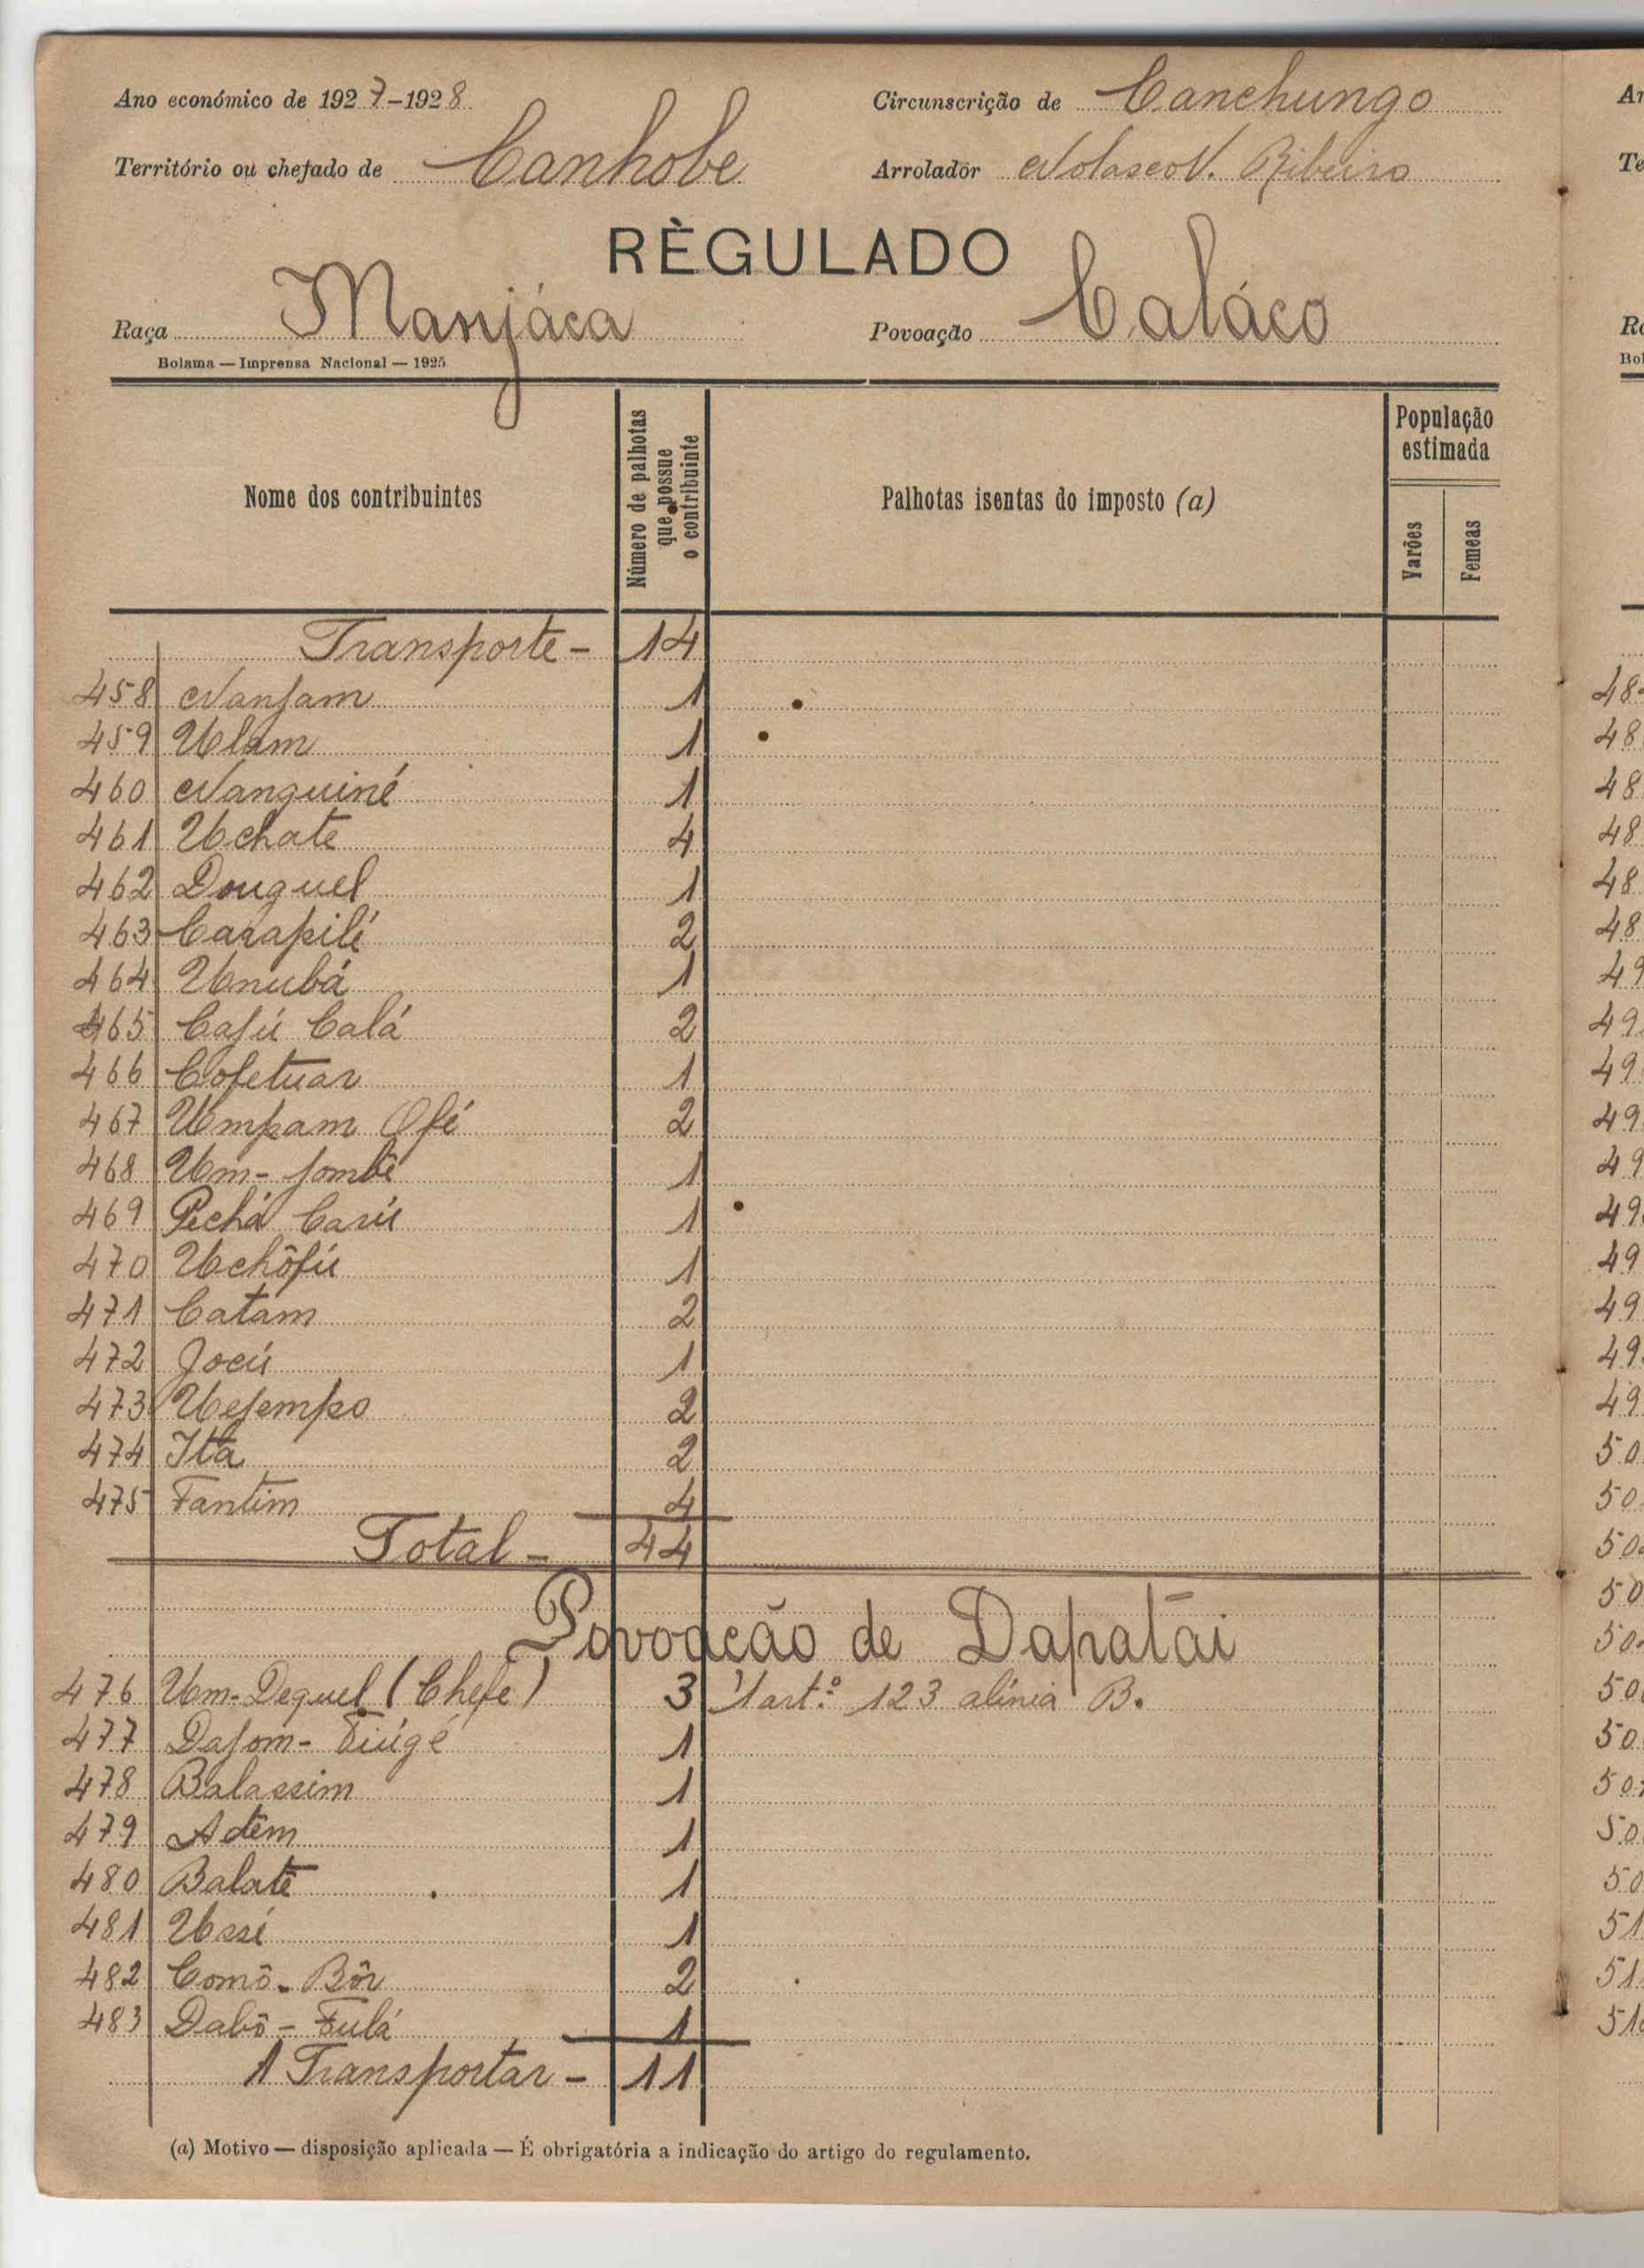 Ano económico de 1927-1928
Circunscrição de Canchungo
Território ou chefado de Canhobe
Arrolador Nolasco V. Ribeiro
RÈGULADO
Raça Manjáca
Povoação Caláco
Bolama — Imprensa Nacional — 1925
Nome dos contribuintes
Número de palhotas que possue o contribuinte
Palhotas isentas do imposto (a)
População estimada
Varões
Femeas
Transporte - 14
458 Nanjam 1
459 Ulam 1
460 Nanguiné 1
461 Uchate 4
462 Douguel 1
463 Carapilé 2
464 Unubá 1
465 Cajú Calá 2
466 Cofetuar 1
467 Umpam Ofé 2
468 Um-jombê 1
469 Pechá Carú 1
470 Uchôfú 1
471 Catam 2
472 Jocú 1
473 Uejempo 2
474 Ita 2
475 Fantim 4
Total - 44
Povoação de Dapatai
476 Um-Dequel (Chefe) 3 1 art.º 123 alínia B.
477 Dajom- Fiúgé 1
478 Balassim 1
479 Adêm 1
480 Balatê 1
481 Ussí 1
482 Comô- Bôr 2
483 Dabô- Fulá 1
A Transportar - 11
(a) Motivo — disposição aplicada — É obrigatória a indicação do artigo do regulamento.